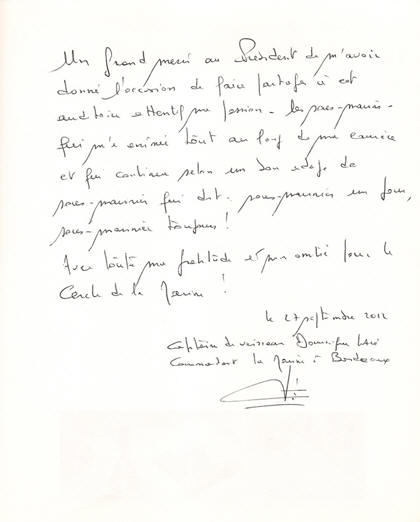 Un grand merci au Président de m'avoir
donné l'occasion de faire partager à cet
auditoire attentif ma passion - les sous-marins -
qui m'a animé tout au long de ma carrière
et qui continue selon un bon adage de
sous-marinier qui dit : sous-marinier un jour,
sous-marinier toujours !
Avec toute ma gratitude et mon amitié pour le
Cercle de la Marine !
le 27 septembre 2012
Capitaine de vaisseau Dominique
Commandant la Marine à Bordeaux